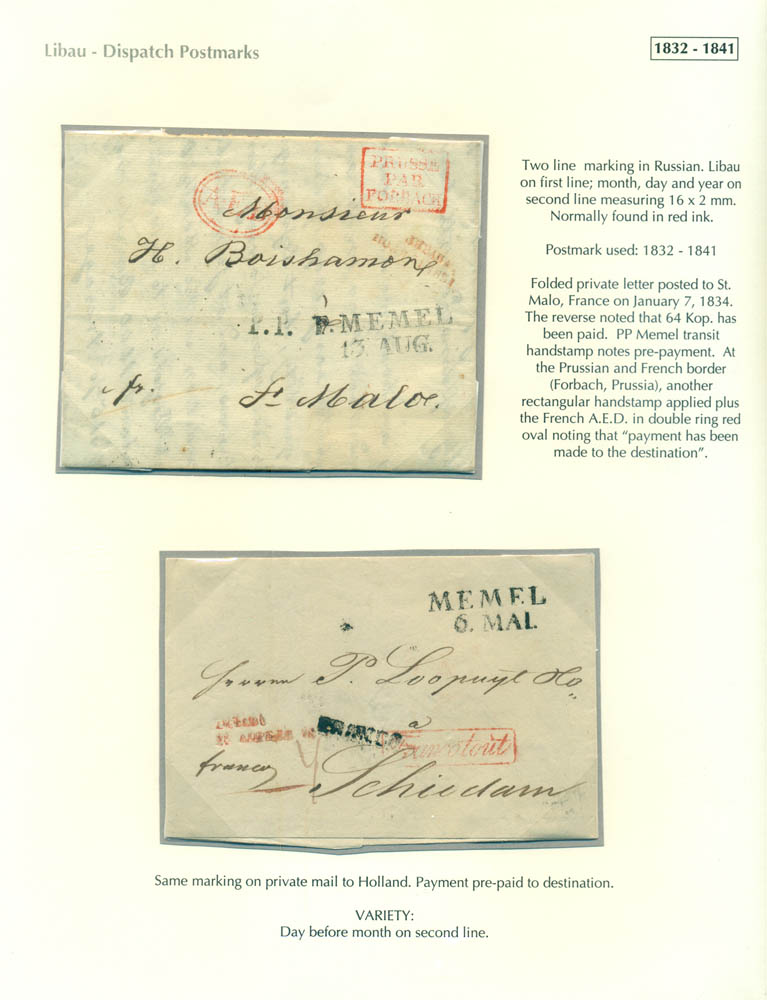 Libau - Dispatch Postmarks
1832 - 1841
PRUSSE
PAR
FORBACH
A.E.D.
Monsieur
H. Boishamon
P.P. MEMEL
13. AUG.
fr. St Malo.
Two line marking in Russian. Libau
on first line; month, day and year on
second line measuring 16 x 2 mm.
Normally found in red ink.
Postmark used: 1832 - 1841
Folded private letter posted to St.
Malo, France on January 7, 1834.
The reverse noted that 64 Kop. has
been paid. PP Memel transit
handstamp notes pre-payment. At
the Prussian and French border
(Forbach, Prussia), another
rectangular handstamp applied plus
the French A.E.D. in double ring red
oval noting that “payment has been
made to the destination”.
MEMEL
6. MAI.
Herren P. Loopuyt
a
franco
Schiedam
Same marking on private mail to Holland. Payment pre-paid to destination.
VARIETY:
Day before month on second line.